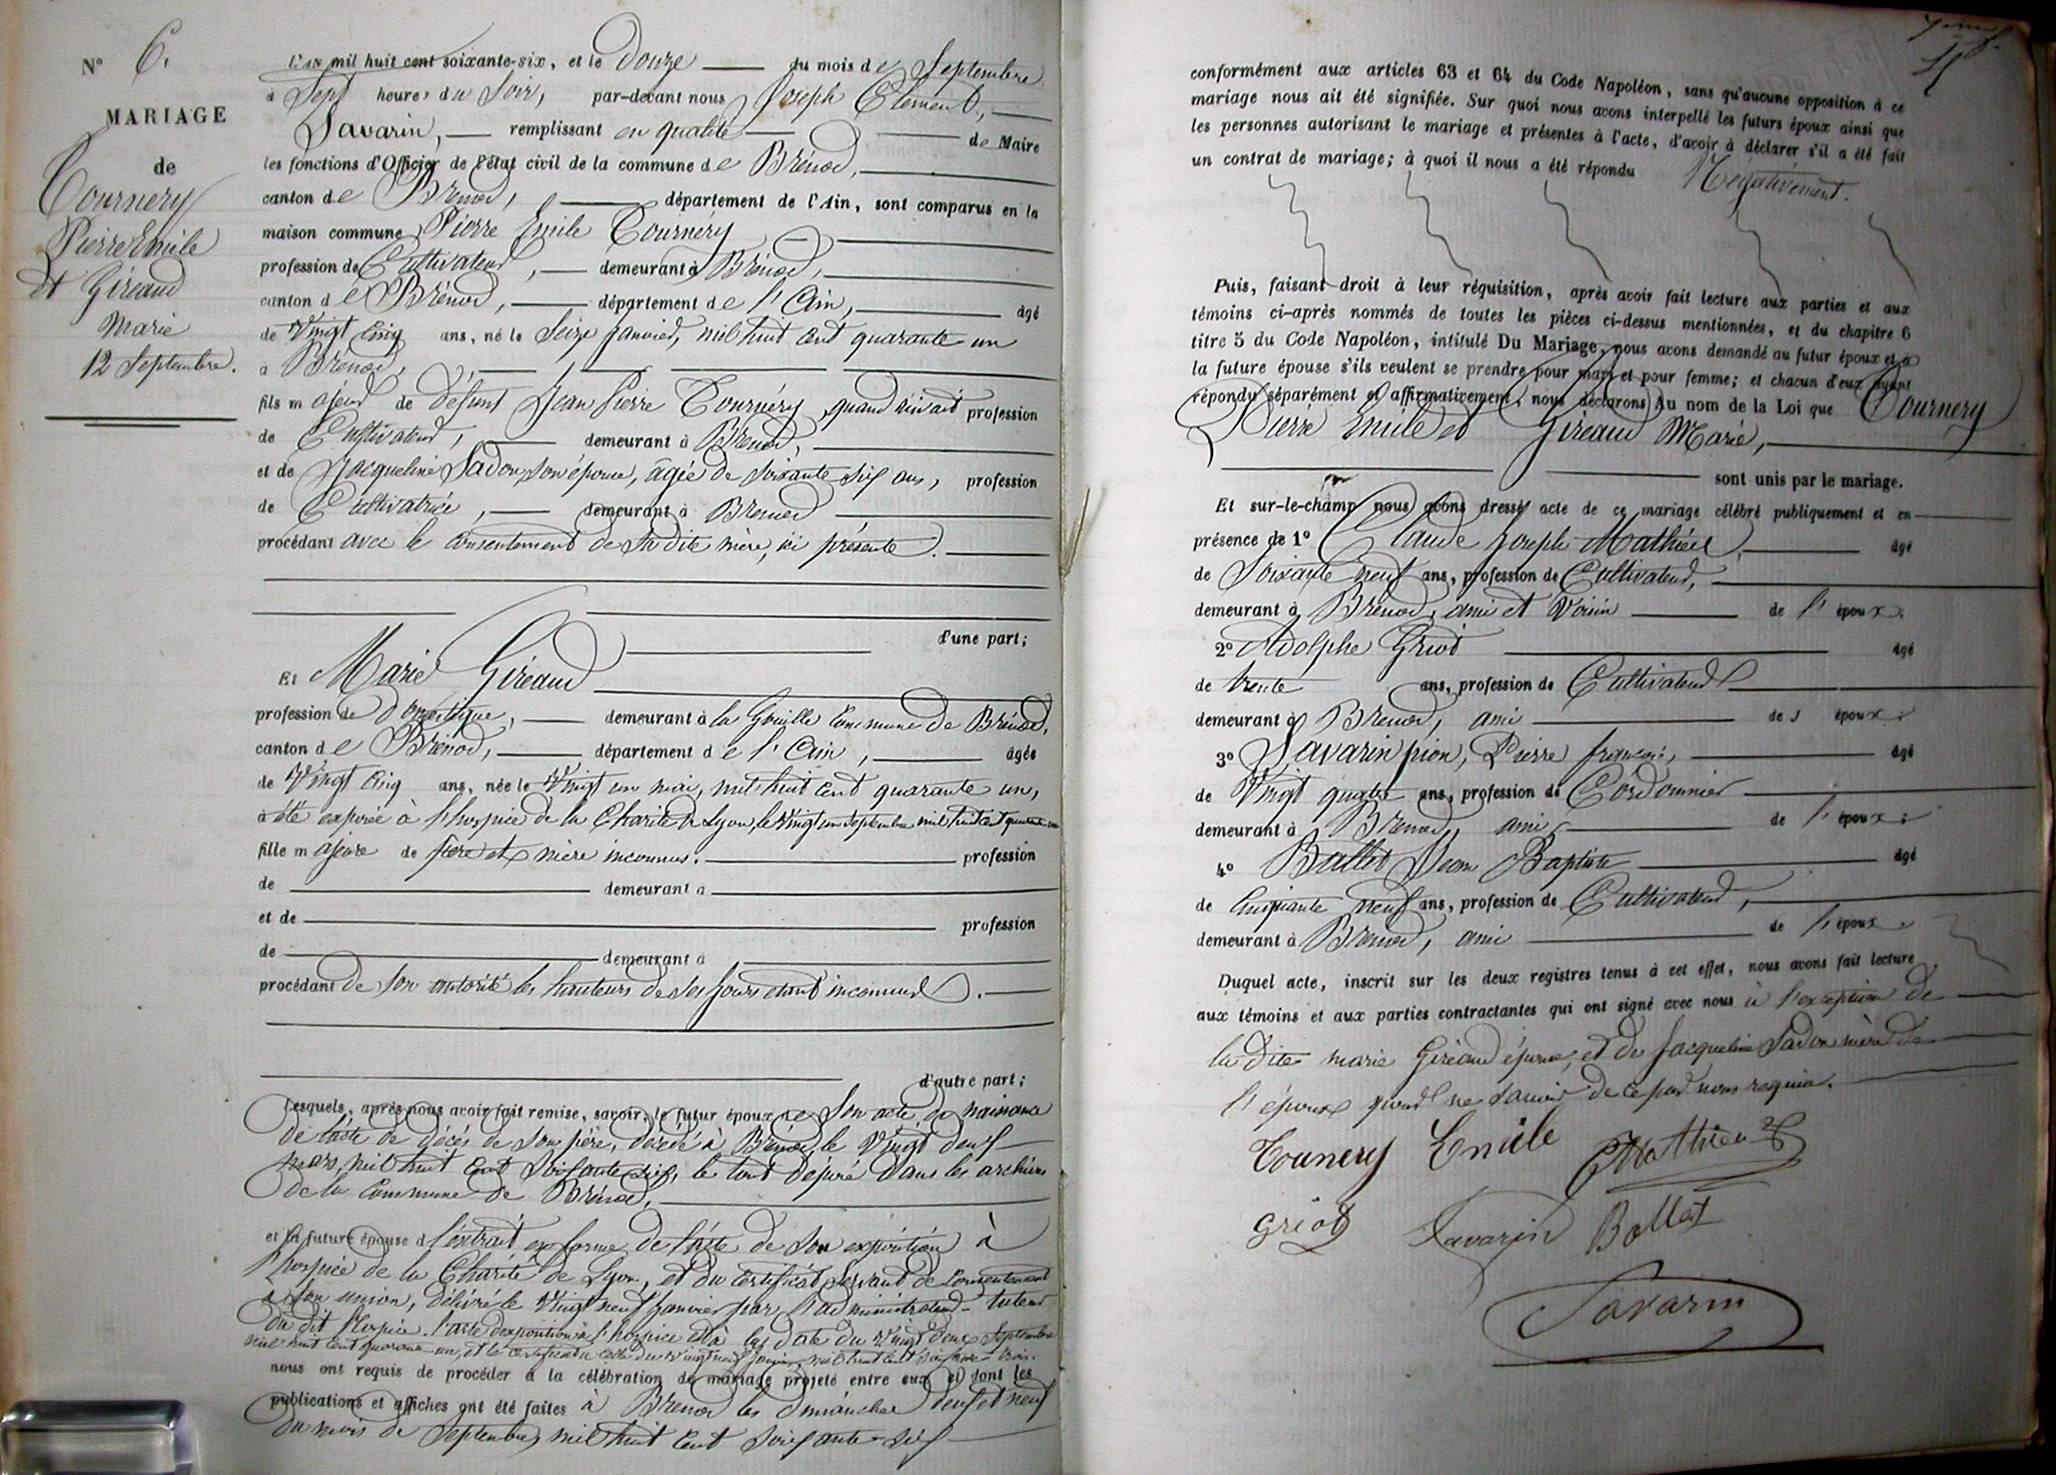 N° 6.
MARIAGE
de
Tournery
Pierre Emile
et Giréaud
Marie
12 Septembre.
L'AN mil huit cent soixante-six, et le Douze du mois de Septembre
à Sept heures du Soir, par-devant nous Joseph Clément,
Savarin, remplissant en qualité de Maire
les fonctions d'Officier de l'état civil de la commune de Brénod,
canton de Brénod, département de l'Ain, sont comparus en la
maison commune Pierre Emile Tournéry
profession de Cultivateur, demeurant à Brénod,
canton de Brénod, département de l'Ain, âgé
de Vingt Cinq ans, né le Seize Janvier, mil huit cent quarante un
à Brénod,
fils majeur de défunt Jean Pierre Tournéry quand vivait profession
de Cultivateur, demeurant à Brénod,
et de Jacqueline Sadon, son épouse, âgée de Soixante six ans, profession
de Cultivatrice, demeurant à Brénod
procédant avec le consentement de sa dite mère, ici présente.
d'une part;
Et Marie Giréaud
profession de Domestique, demeurant à la Gouille Commune de Brénod,
canton de Brénod, département de l'Ain, âgée
de Vingt Cinq ans, née le Vingt un mai, mil huit cent quarante un,
à été exposée à l'hospice de la Charité de Lyon, le Vingt un Septembre mil huit cent quarante un
fille majeure de père et mère inconnus. profession
de demeurant à
et de profession
de demeurant à
procédant de son autorité les hauteurs de ses jours étant inconnus.
d'autre part;
Lesquels, après nous avoir fait remise, savoir: le futur époux de Son acte de naissance
de l'acte de décès de Son père, décédé à Brénod, le Vingt deux
mars, mil huit cent soixante six, le tout déposé dans les archives
de la Commune de Brénod,
et la future épouse de l'extrait en forme de l'acte de Son exposition à
l'hospice de la Charité de Lyon, et du Certificat servant de Consentement
à Son union, délivré le Vingt neuf Janvier par l'administrateur tuteur
du dit Hospice. l'acte d'exposition à l'hospice est à la date du Vingt deux Septembre
mil huit cent quarante un, et le certificat à celle du vingt neuf janvier mil huit cent soixante trois.
nous ont requis de procéder à la célébration du mariage projeté entre eux et dont les
publications et affiches ont été faites à Brénod les dimanches deux et neuf
du mois de Septembre, mil huit Cent Soixante-Six
conformément aux articles 63 et 64 du Code Napoléon, sans qu'aucune opposition à ce
mariage nous ait été signifiée. Sur quoi nous avons interpellé les futurs époux ainsi que
les personnes autorisant le mariage et présentes à l'acte, d'avoir à déclarer s'il a été fait
un contrat de mariage; à quoi il nous a été répondu Négativement.
Puis, faisant droit à leur réquisition, après avoir fait lecture aux parties et aux
témoins ci-après nommés de toutes les pièces ci-dessus mentionnées, et du chapitre 6
titre 5 du Code Napoléon, intitulé Du Mariage, nous avons demandé au futur époux et à
la future épouse s'ils veulent se prendre pour mari et pour femme; et chacun d'eux ayant
répondu séparément et affirmativement, nous déclarons Au nom de la Loi que Tournery
Pierre Emile et Giréaud Marie,
sont unis par le mariage.
Et sur-le-champ nous avons dressé acte de ce mariage célébré publiquement et en
présence de 1° Claude Joseph Mathieu, âgé
de Soixante neuf ans, profession de Cultivateur,
demeurant à Brénod, ami et Voisin de l'époux.
2° Adolphe Griot âgé
de trente ans, profession de Cultivateur
demeurant à Brénod, ami de l'époux.
3° Savarin pion, Pierre françois, âgé
de Vingt quatre ans, profession de Cordonnier
demeurant à Brénod, ami de l'époux.
4° Ballet Jean Baptiste âgé
de Cinquante neuf ans, profession de Cultivateur,
demeurant à Brénod, ami de l'époux
Duquel acte, inscrit sur les deux registres tenus à cet effet, nous avons fait lecture
aux témoins et aux parties contractantes qui ont signé avec nous à l'exception de
la dite marie Giréaud épouse, et de Jacqueline Sadon mère de
l'époux pour ne savoir de ce par nous requise.
Tournery Emile Mathieu
Griot Savarin Ballet
Savarin